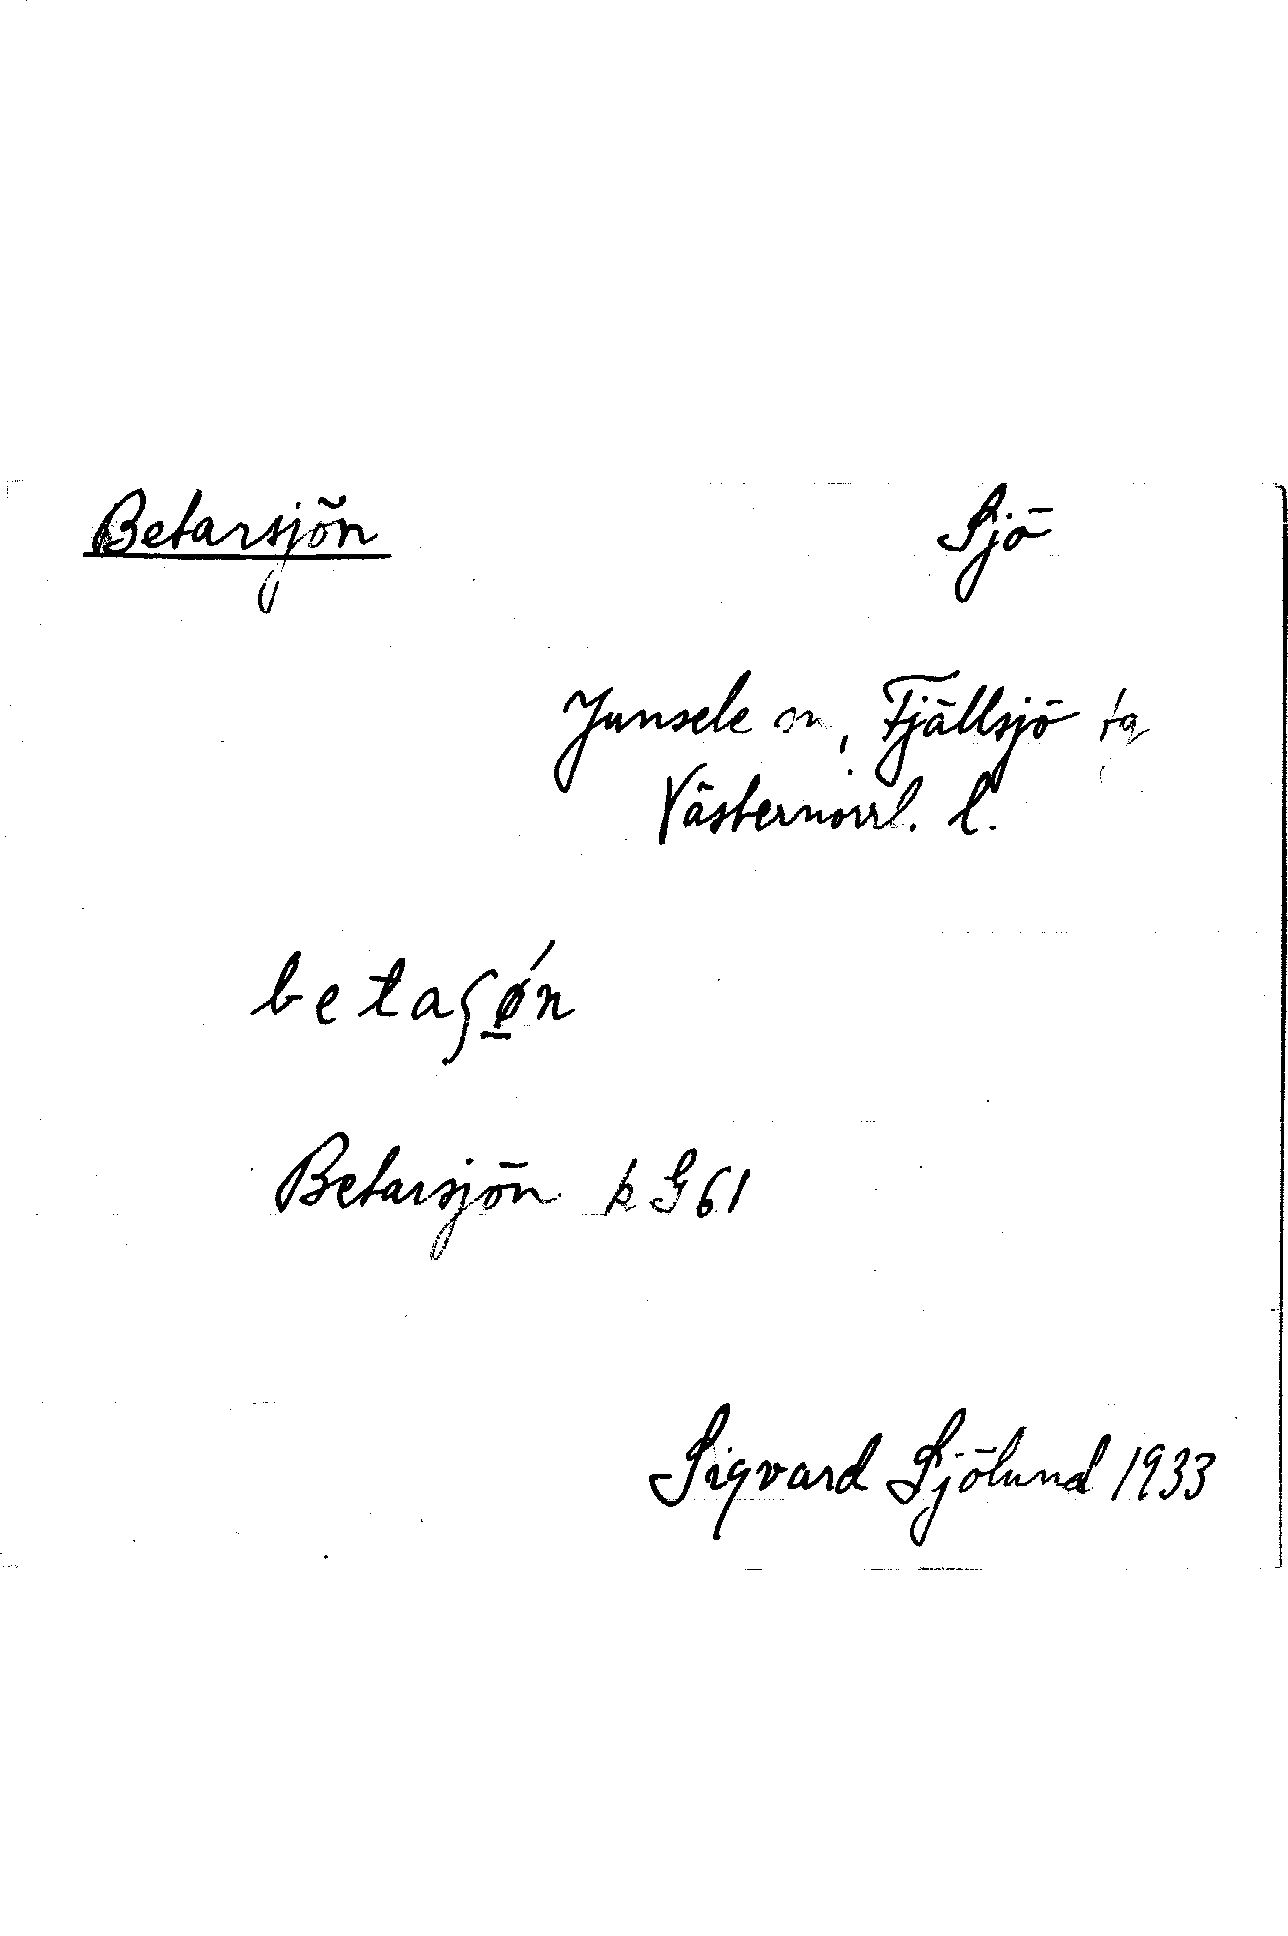 Betarsjön Sjö
Junsele sn, Fjällsjö tg
Västernorrl. l.
betaʃǿ̲n
Betarsjön k G 61
Sigvard Sjölund 1933